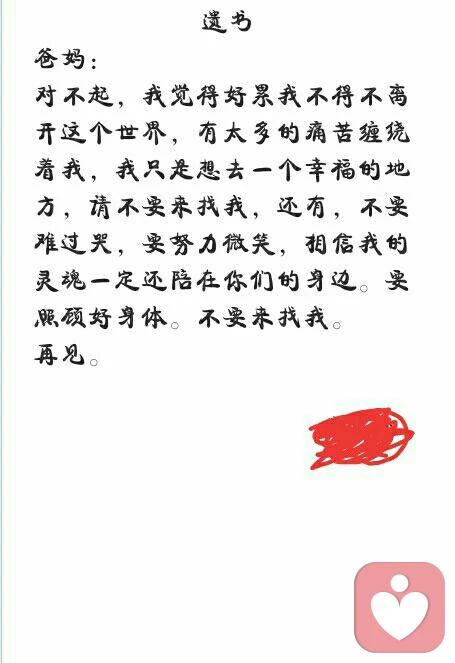 遗书
爸妈：
对不起，我觉得好累我不得不离
开这个世界，有太多的痛苦缠绕
着我，我只是想去一个幸福的地
方，请不要来找我，还有，不要
难过哭，要努力微笑，相信我的
灵魂一定还陪在你们的身边。要
照顾好身体。不要来找我。
再见。